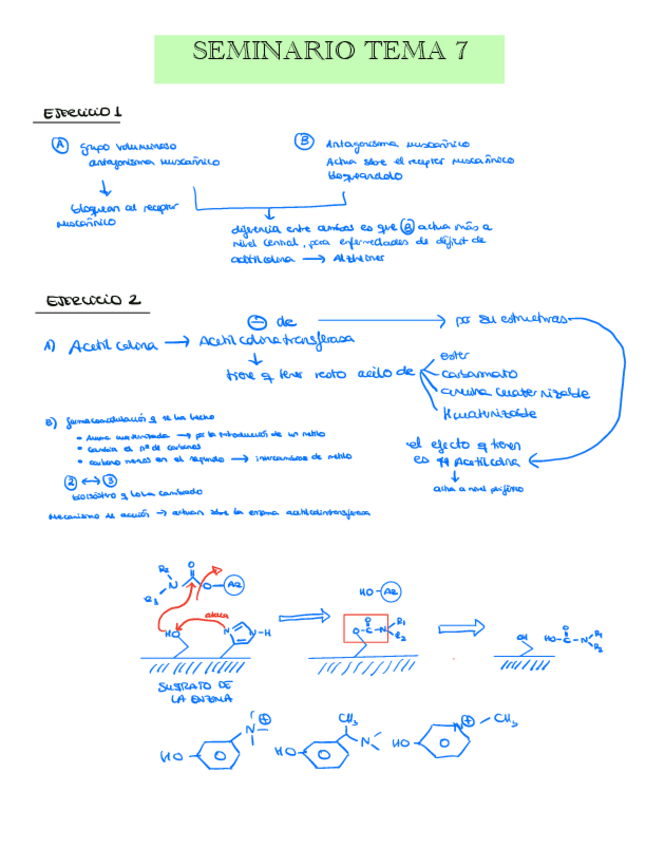 SEMINARIO TEMA 7
EJERCICIO 1
A grupo voluminoso
antagonismo muscarínico
bloquean al receptor
muscarínico
B Antagonismo muscarínico
Actua sobre el receptor muscarínico
bloqueandolo
diferencia entre ambos es que B actua más a
nivel central, para enfermedades de déficit de
acetilcolina → Alzheimer
EJERCICIO 2
⊖ de → por su estructuras
A) Acetil colina → Acetilcolinatransferasa
tiene q tener resto acilo de
ester
carbamato
amina cuaternizable
N cuaternizable
el efecto q tienen
es Acetilcolina
actua a nivel periférico
B) farmacomodulación q se ha hecho
• Amina cuaternizada → por la introducción de un metilo
• cambia el nº de carbonos
• carbono menos en el segundo → intercambios de metilo
2 ↔ 3
bioisóstero q lo ha cambiado
Mecanismo de acción → actuan sobre la enzima acetilcolintransferasa
R2
R1
N
O
O
Ar
ataca
HO
N
N-H
SUSTRATO DE
LA ENZIMA
HO-Ar
O
O-C-N
R1
R2
OH
O
HO-C-N
R1
R2
HO
N
⊕
CH3
HO
N
HO
N
⊕
CH3